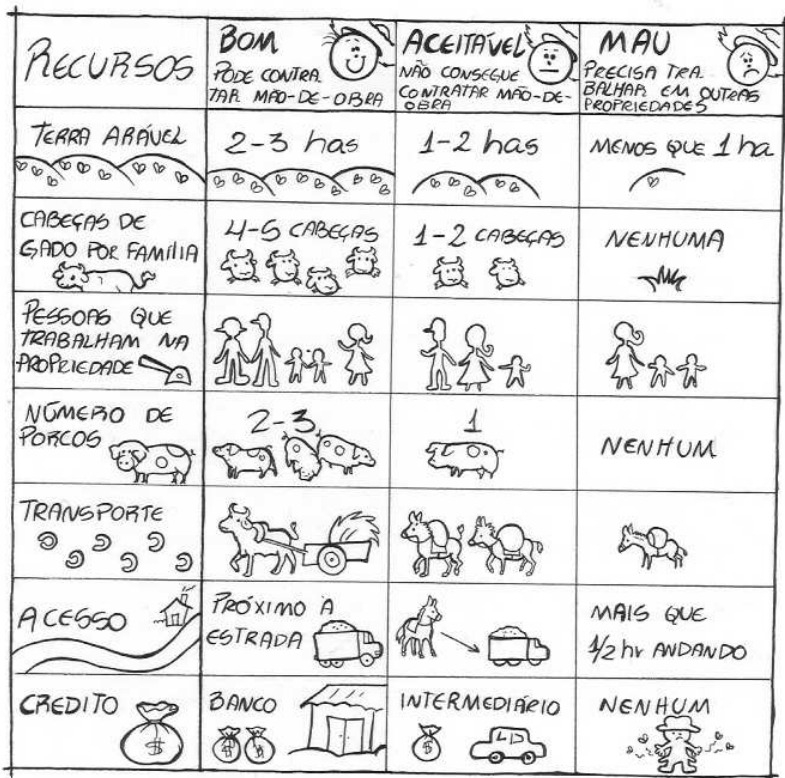 RECURSOS
BOM
PODE CONTRA
TAR MÃO-DE-OBRA
ACEITÁVEL
NÃO CONSEGUE
CONTRATAR MÃO-DE-
OBRA
MAU
PRECISA TRA
BALHAR EM OUTRAS
PROPRIEDADES
TERRA ARÁVEL
2-3 has
1-2 has
MENOS QUE 1 ha
CABEÇAS DE
GADO POR FAMÍLIA
4-5 CABEÇAS
1-2 CABEÇAS
NENHUMA
PESSOAS QUE
TRABALHAM NA
PROPRIEDADE
NÚMERO DE
PORCOS
2-3
1
NENHUM
TRANSPORTE
ACESSO
PRÓXIMO À
ESTRADA
MAIS QUE
1/2 hr ANDANDO
CREDITO
$
BANCO
$ $
INTERMEDIÁRIO
$
NENHUM